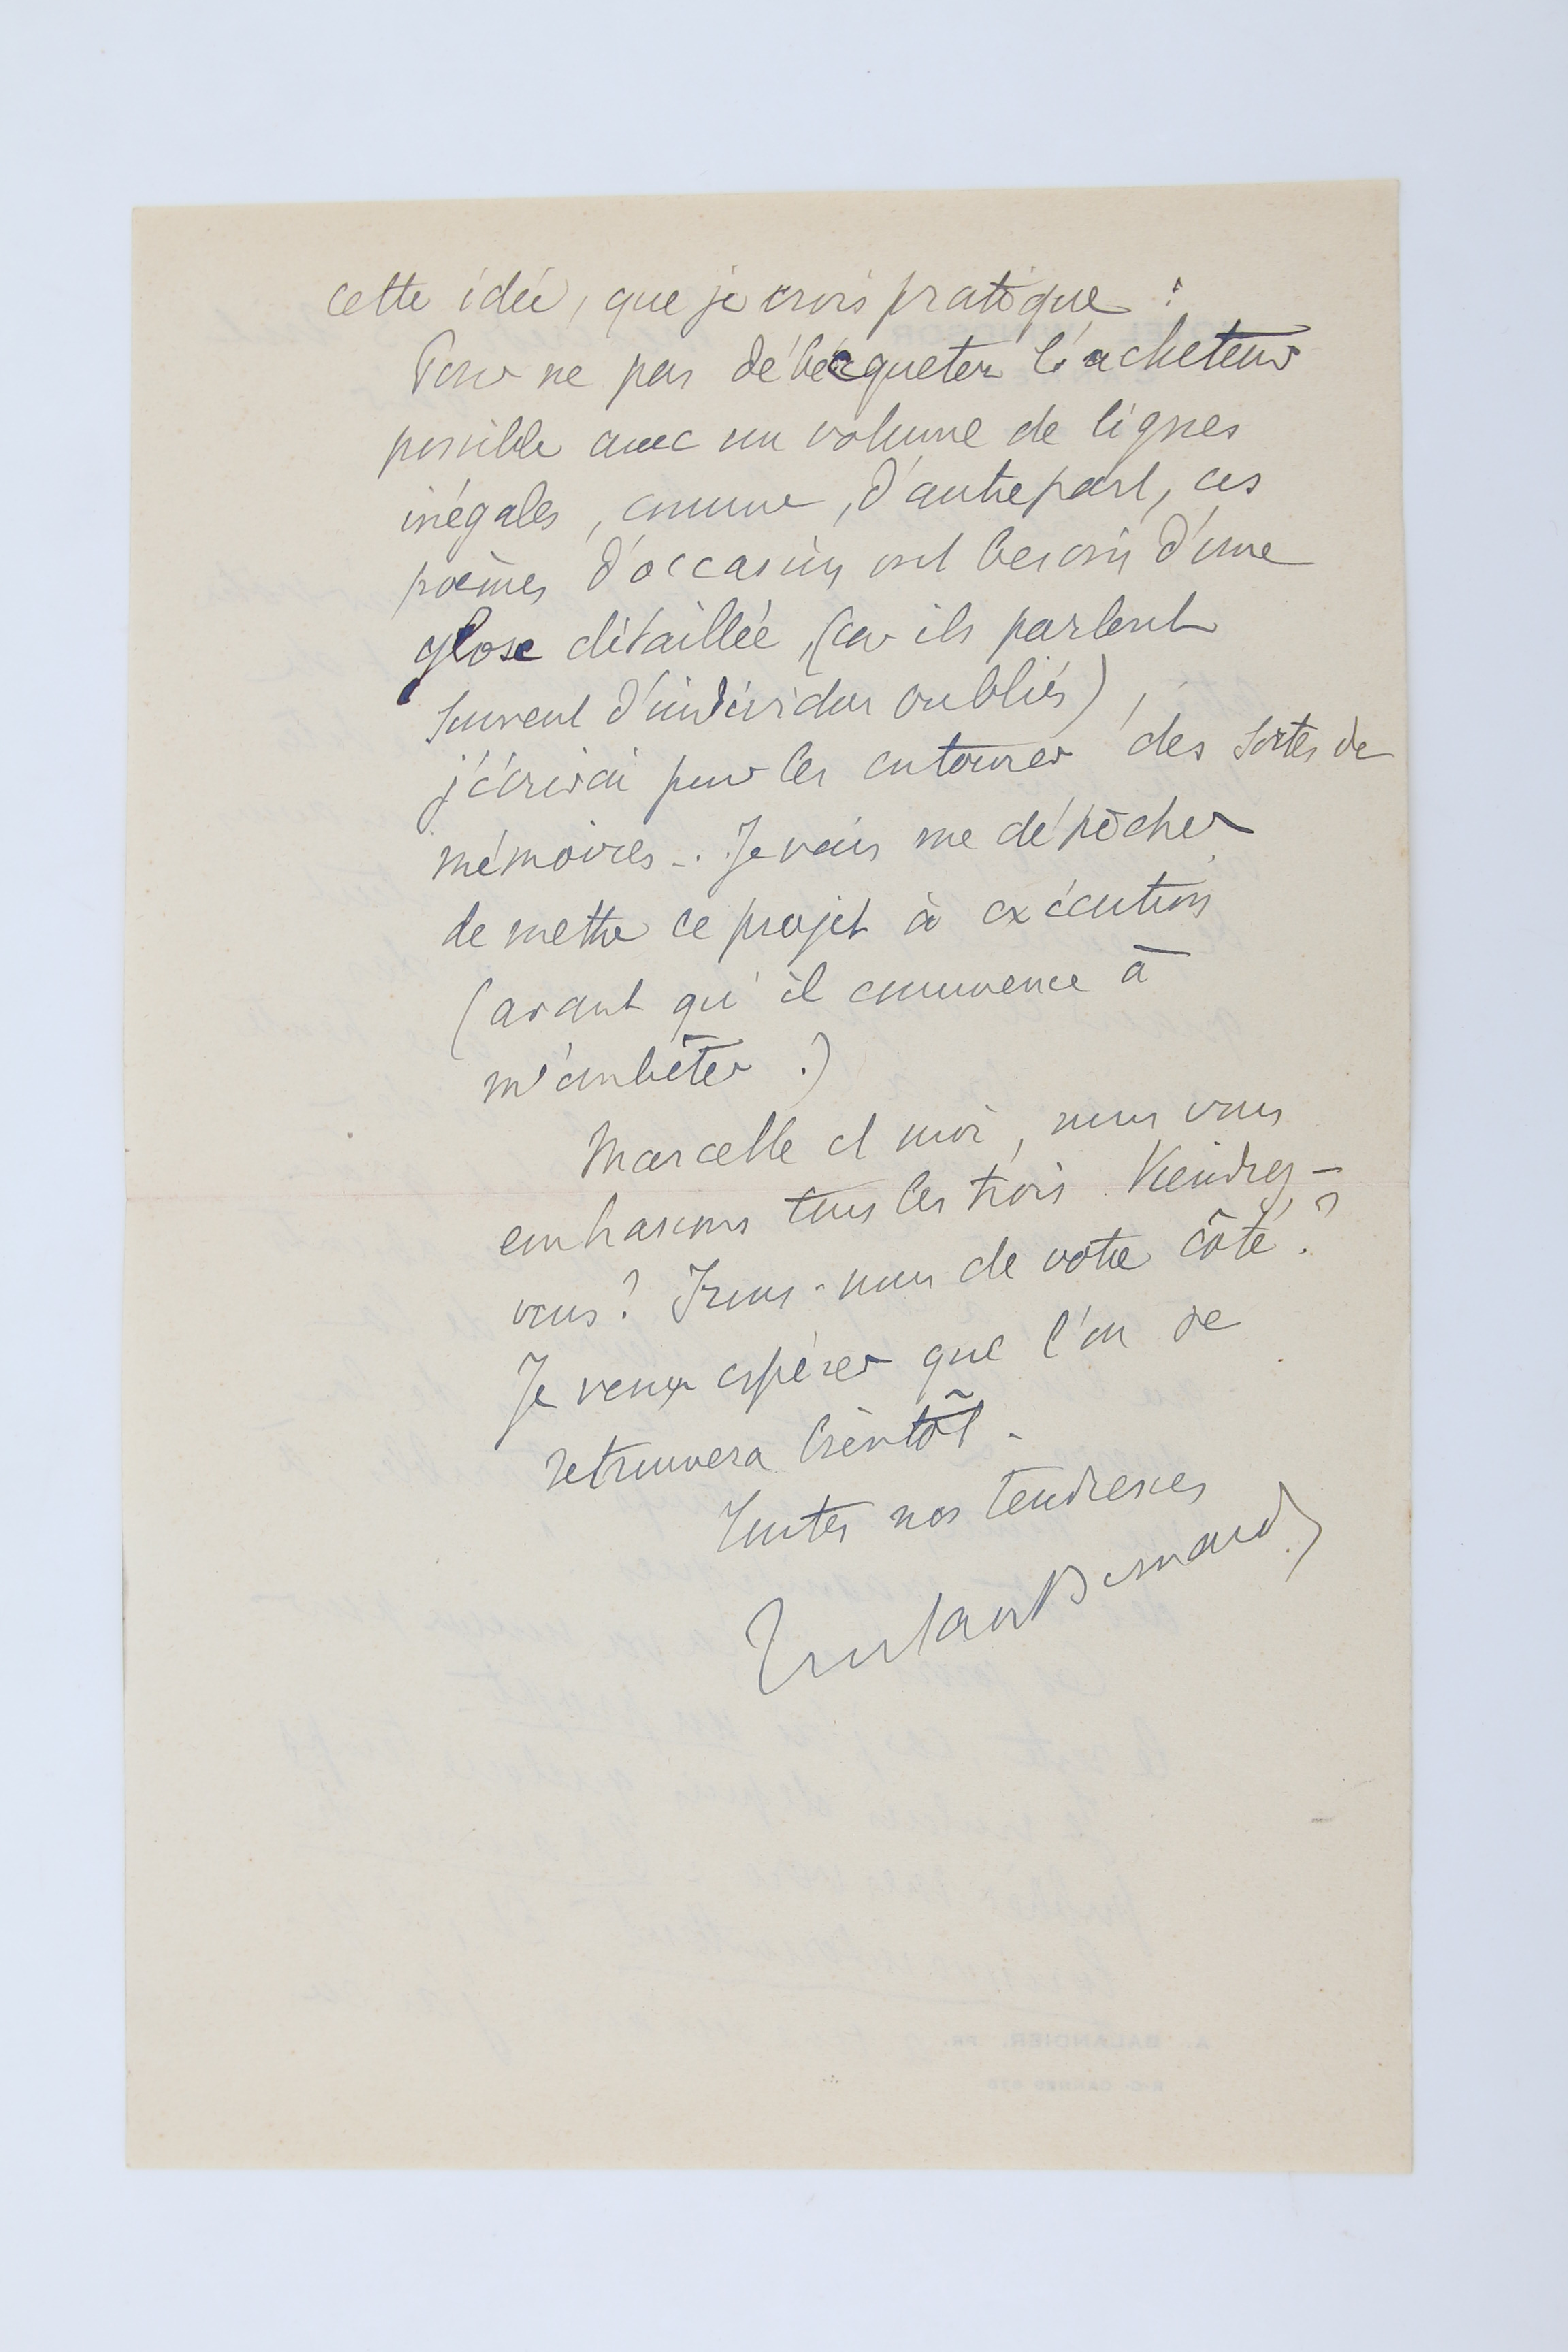 cette idée, que je crois pratique :
Pour ne pas débecqueter l'acheteur
possible avec un volume de lignes
inégales, comme, d'autre part, ces
poèmes d'occasion ont besoin d'une
glose détaillée, (car ils parlent
souvent d'individus oubliés),
j'écrirai pour les entourer des sortes de
mémoires... Je vais me dépêcher
de mettre ce projet à exécution
(avant qu'il commence à
m'embêter.)
Marcelle et moi, nous vous
embrassons tous les trois. Viendrez-
vous? Irons-nous de votre côté?
Je veux espérer que l'on se
retrouvera bientôt.
Toutes nos tendresses
Tristan Bernard
A. BALANDIER, PR.